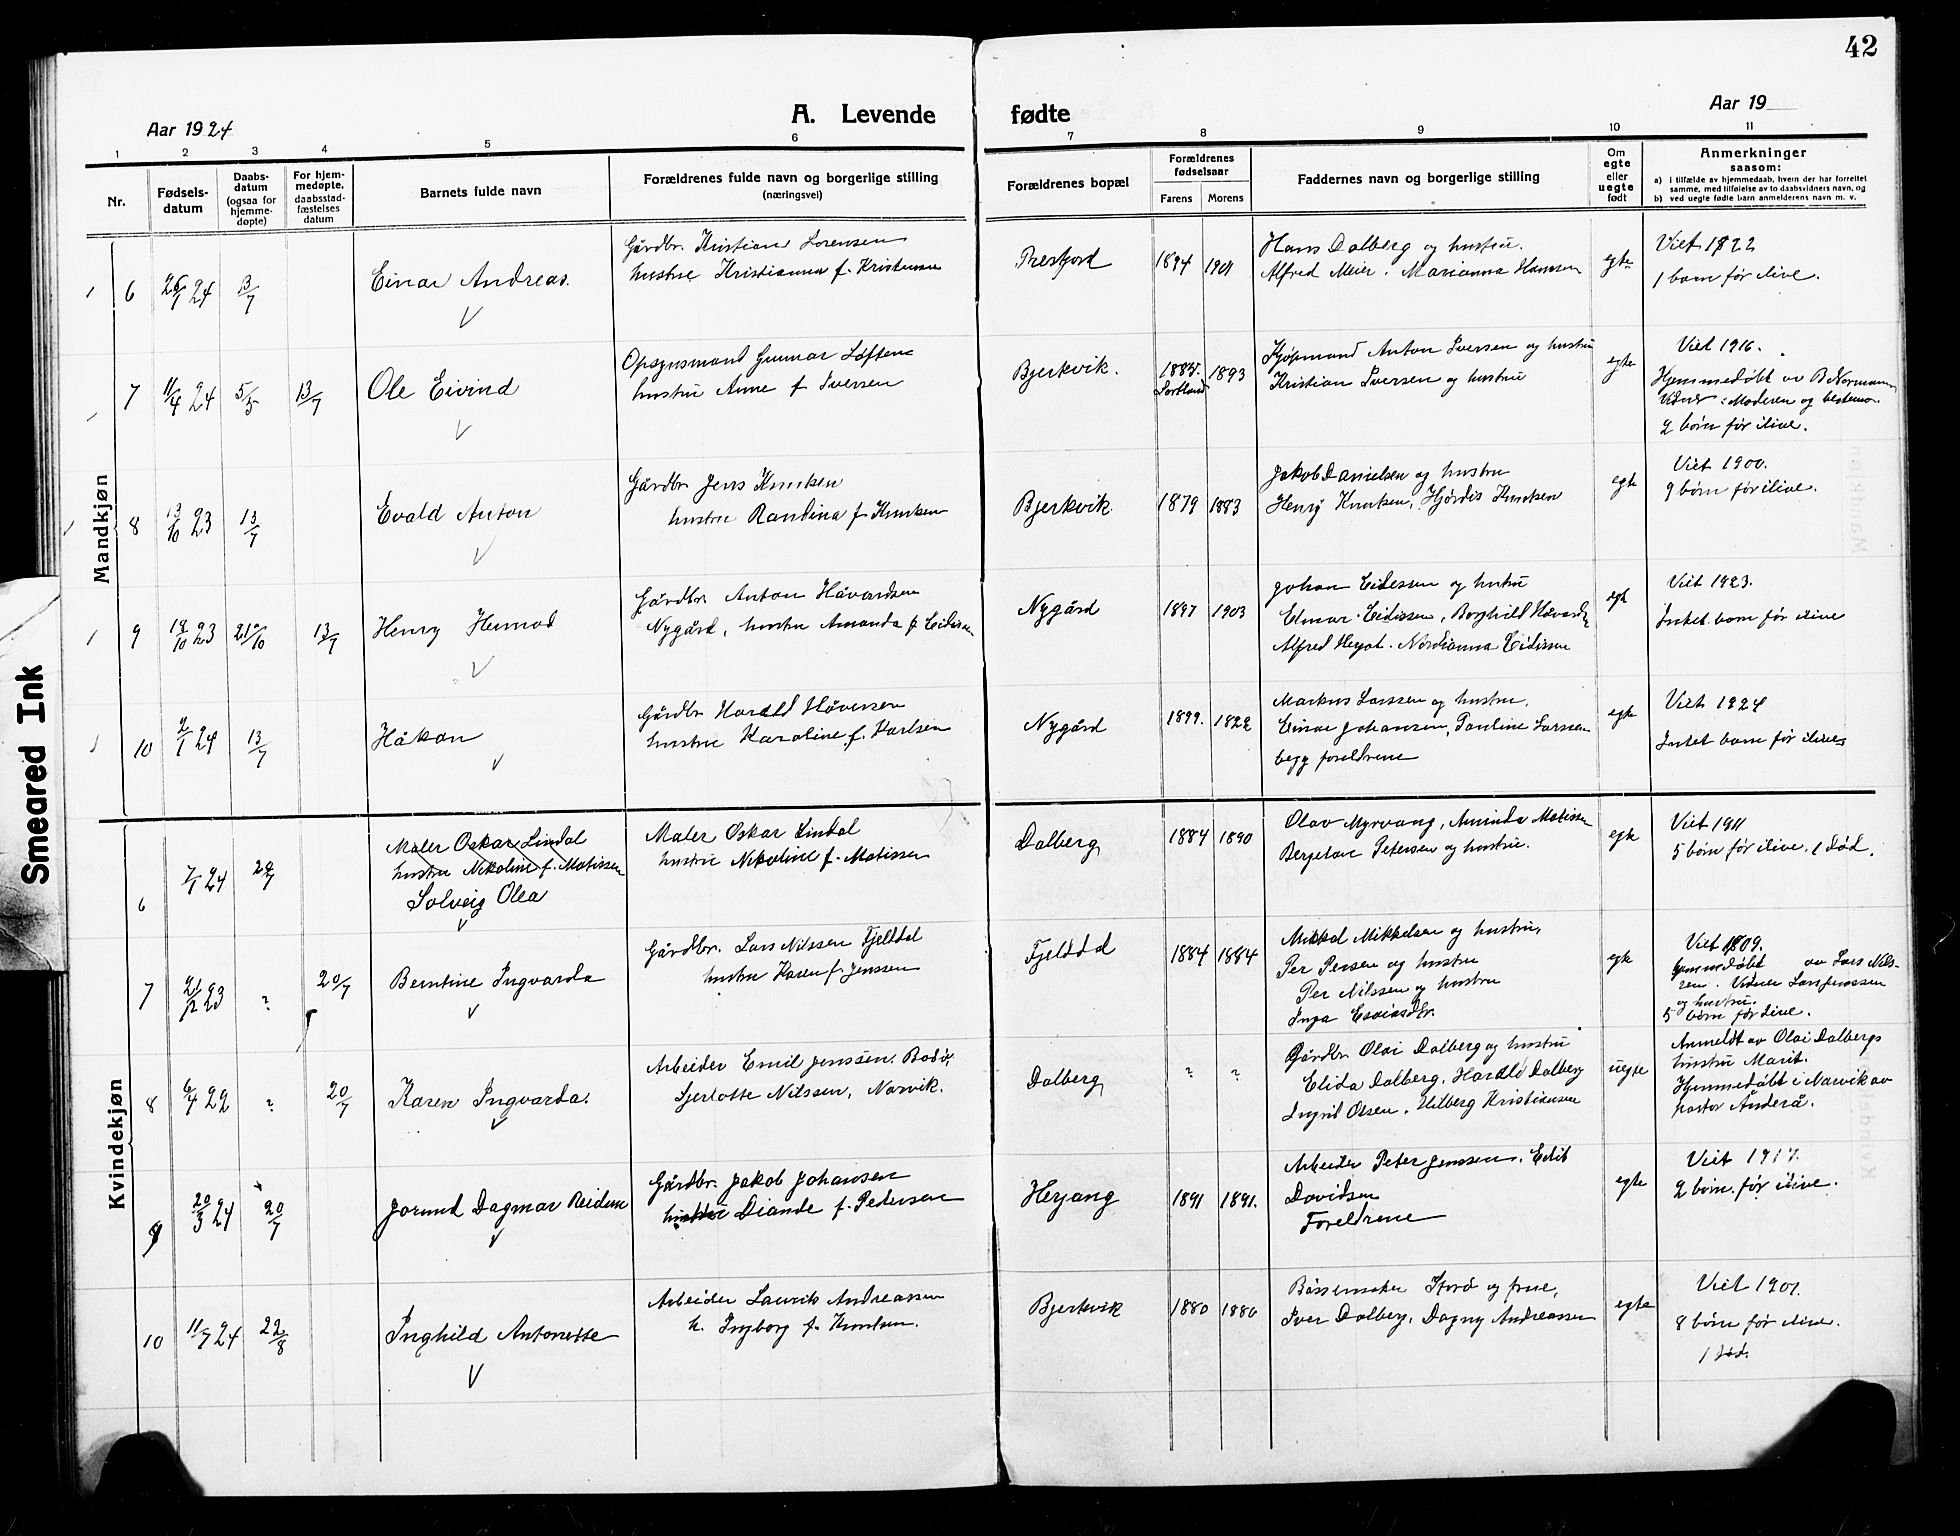 42
Aar 1924
A. Levende fødte
Aar 19
1 2 3 4 5 6 7 8 9 10 11
Nr.
Fødsels-
datum
Daabs-
datum
(ogsaa for
hjemme-
døpte)
For hjem-
medøpte,
daabsstad-
fæstelses
datum
Barnets fulde navn
Forældrenes fulde navn og borgerlige stilling
(næringsvei)
Forældrenes bopæl
Forældrenes
fødselsaar
Farens Morens
Faddernes navn og borgerlige stilling
Om
egte
eller
uegte
født
Anmerkninger
saasom:
a) i tilfælde av hjemmedaab, hvem der har forrettet
samme, med tilføielse av to daabsvidners navn, og
b) ved uegte fødte barn anmelderens navn m. v.
Mandkjøn
6 26/1 24 13/7
Einar Andreas.
Gårdbr. Kristian Sorensen
hustrue Kristianna f. Kristensen
Presfjord
1894 1901
Hans Dalberg og hustru.
Alfred Meier. Marianna Hansen
egte
Viet 1922
1 barn før ilive.
7 11/4 24 5/5 13/7
Ole Eivind
Opsynsmand Gunnar Løften
hustru Anne f. Iversen
Bjerkvik.
1887. 1893
Sortland
Kjøpmand Anton Iversen og hustru
Kristian Iversen og hustru
egte
Viet 1916.
Hjemmedøbt av B. Normann
Vidner: Moderen og bestemo.
2 børn før ilive.
8 13/10 23 13/7
Evald Anton
Gårdbr Jens Knutsen
hustru Randina f. Knutsen
Bjerkvik.
1879 1883
Jakob Danielsen og hustru
Henry Knutsen, Hjørdis Knutsen
egte
Viet 1900.
9 børn før ilive.
9 18/10 23 21/10 13/7
Henry Hemod
Gårdbr. Anton Håvardsen
Nygård, hustru Amanda f. Eidissen
Nygård
1897 1903
Johan Eidesen og hustru
Elmar Eidissen, Borghild Håvards
Alfred Heyot. Nordianna Eidissen
egte
Viet 1923.
Intet barn før ilive
10 2/1 24 13/7
Håkon
Gårdbr Harald Håversen
hustru Karoline f. Karlsen
Nygård
1899. 1822
Markus Larssen og hustru.
Einar Johansen, Pauline Larssen
begg foreldrene
egte
Viet 1924
Intet barn før ilive
Kvindekjøn
6 7/1 24 20/7
Maler Oskar Lindal
hustru Nikoline f. Matissen
Solveig Olea
Maler Oskar Lindal
hustru Nikoline f. Matissen
Dalberg
1884 1890
Olav Myrvang, Aminda Matissen
Bergetove Petersen og hustru.
egte
Viet 1911
5 børn før ilive, 1 død.
7 21/12 23 ? 20/7
Berntine Ingvarda
Gårdbr. Lars Nilssen Fjelldal
hustru Karen f. Jenssen
Fjelldal
1884 1884
Mikkal Mikkelsen og hustru,
Per Persen og hustru
Per Nilssen og hustru
Inga Esaiasdtr.
egte
Viet 1909.
Hjemmedøbt av Lars Nils-
sen. Vidner Lars Jenssen
og hustru.
5 børn før ilive.
8 6/4 22 ? 20/7
Karen Ingvarda.
Arbeider Emil Jenssen. Bodø,
Sjerlotte Nilssen, Narvik.
Dalberg
? ?
Gårdbr. Olai Dalberg og hustru
Elida Dalberg, Harald Dalberg
Ingrid Olsen. Hilberg Kristiansen
uegte
Anmeldt av Olai Dalbergs
hustru Marit.
Hjemmedøbt i Narvik av
pastor Anderå.
9 20/3 24 20/7
Jorund Dagmar Reidun
Gårdbr. Jakob Johansen
hustru Diande f. Petersen
Herjang
1891 1891.
Arbeider Peter Jenssen, Edit
Davidsen
Foreldrene
egte
Viet 1917.
2 børn før ilive.
10 11/7 24 22/8
Inghild Antonette
Arbeider Laurits Andreassen
h. Ingborg f. Knutsen.
Bjerkvik
1880 1880
Bøssemaker Stord og frue,
Iver Dalberg, Dagny Andreassen
egte
Viet 1901.
8 børn før ilive.
1 død.
Smeared Ink